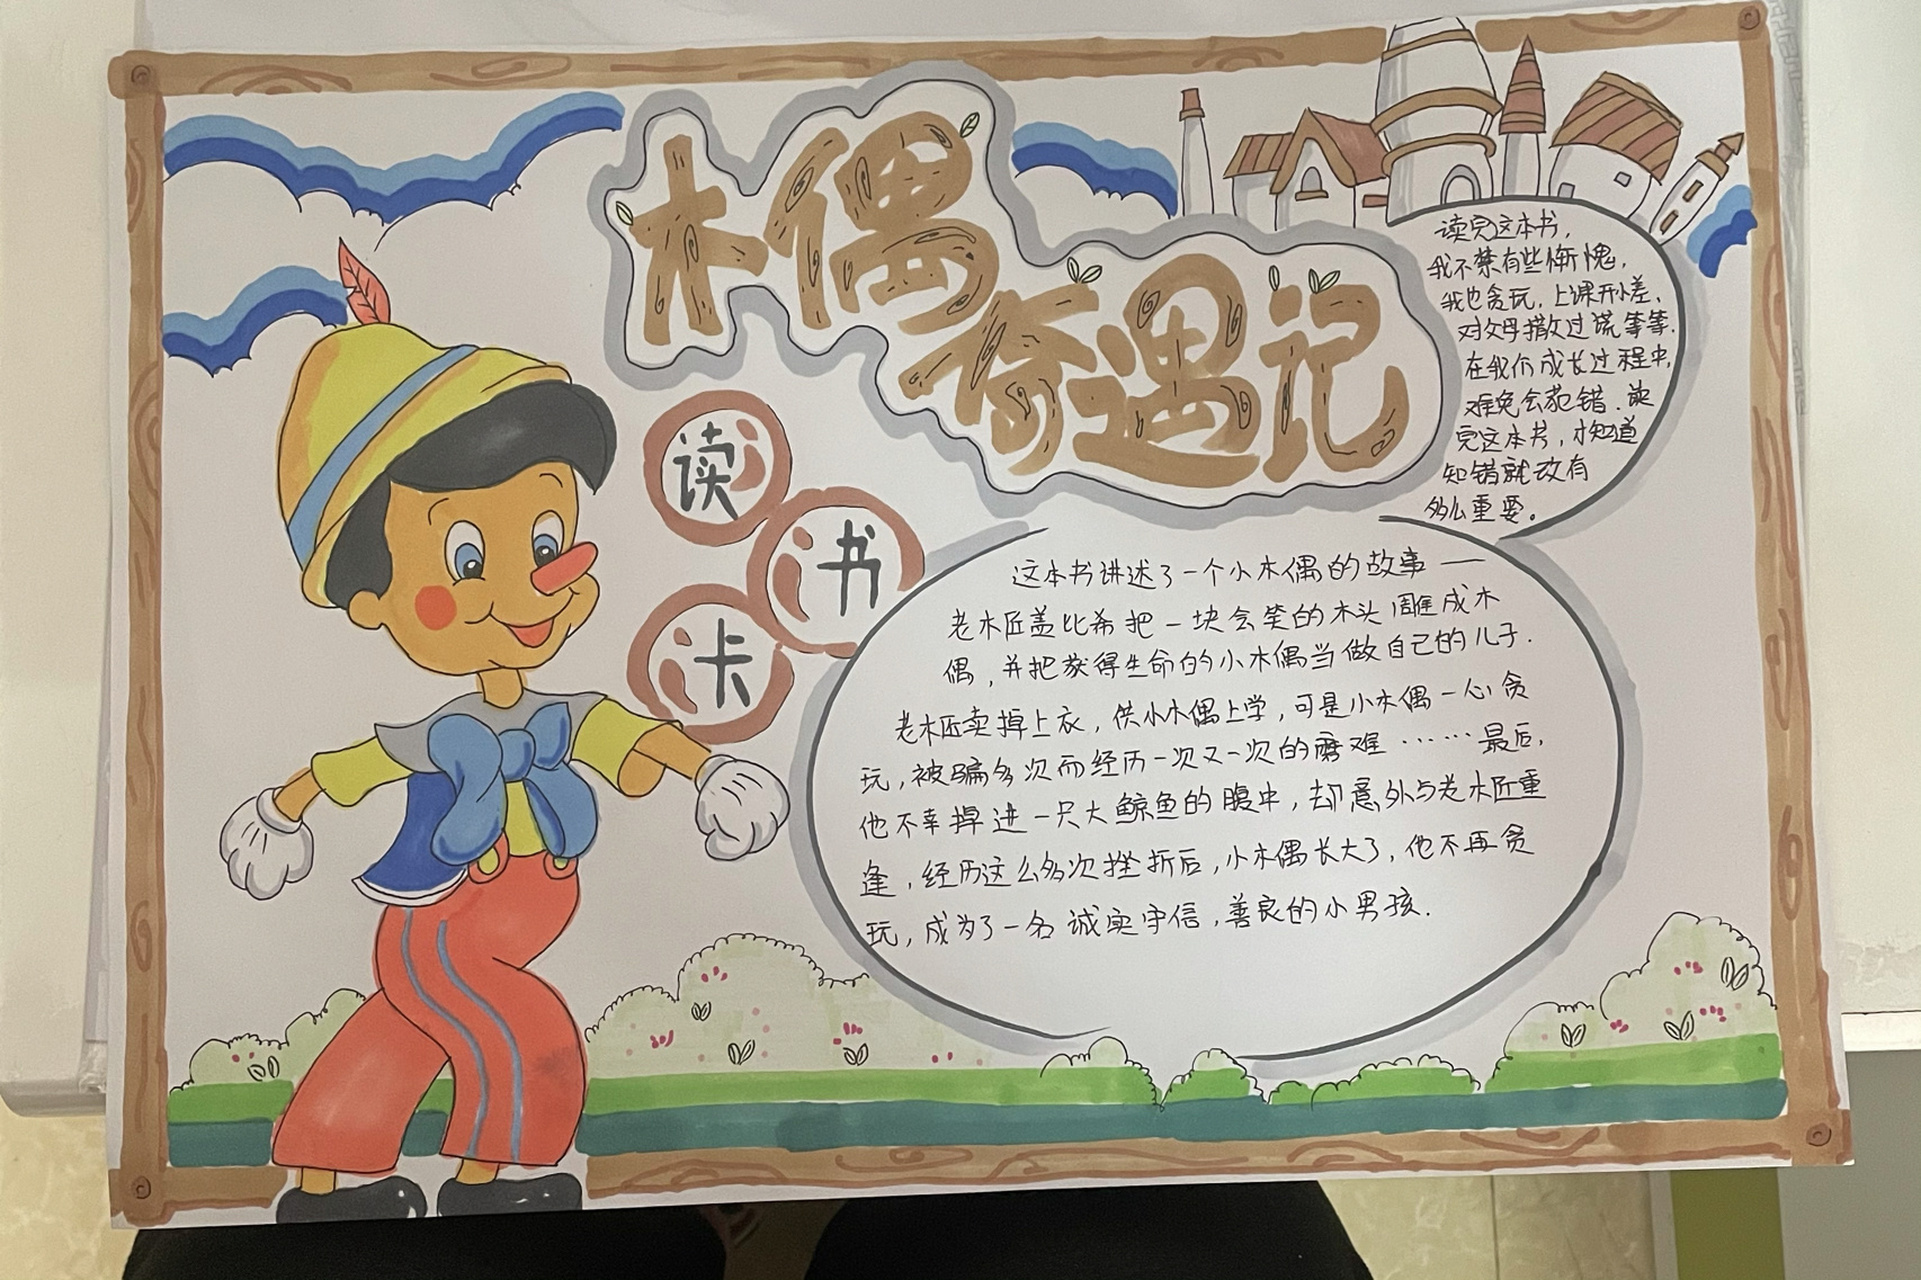 木偶
奇遇记
读
书
卡
读完这本书，
我不禁有些惭愧，
我也贪玩，上课开小差，
对父母撒过谎等等.
在我们成长过程中,
难免会犯错.读
完这本书，才知道
知错就改有
多么重要。
这本书讲述了一个小木偶的故事——
老木匠盖比希把一块会笑的木头雕成木
偶，并把获得生命的小木偶当做自己的儿子.
老木匠卖掉上衣，供小木偶上学，可是小木偶一心贪
玩，被骗多次而经历一次又一次的磨难……最后，
他不幸掉进一只大鲸鱼的腹中，却意外与老木匠重
逢，经历这么多次挫折后，小木偶长大了，他不再贪
玩，成为了一名诚实守信，善良的小男孩.